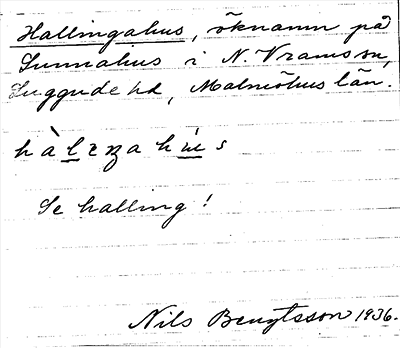 Hallingahus, öknamn på
Sunnahus i N. Vrams sn,
Luggude hd, Malmöhus län.
Se halling!
Nils Bengtsson 1936.